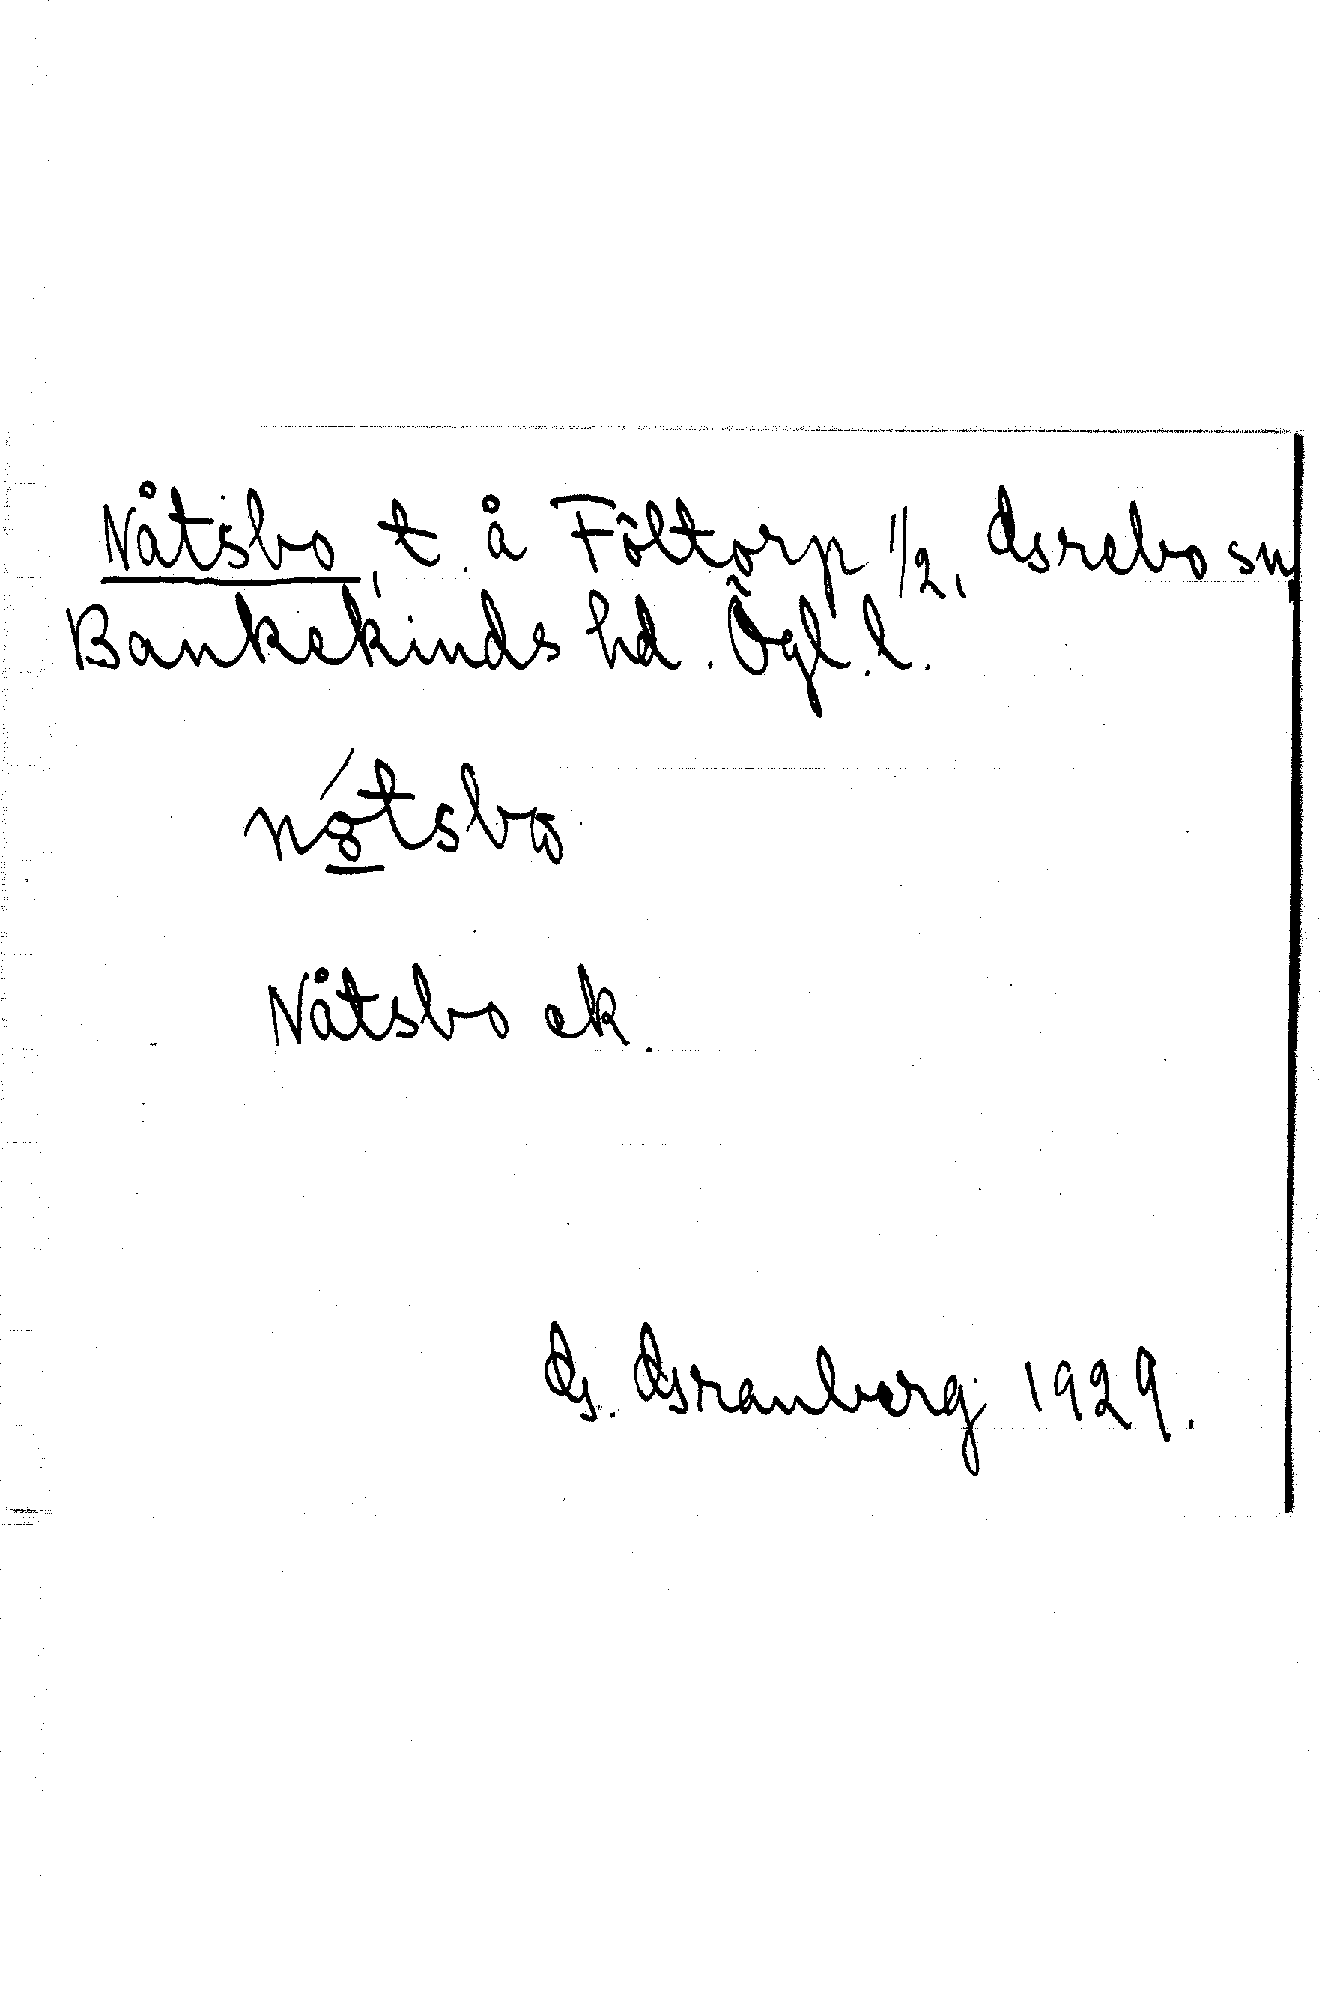 Nåtsbo, t. å Föltorp 1/2, Grebo sn
Bankekinds hd. Ögl. l.
Nåtsbo ek.
G. Granberg 1929.